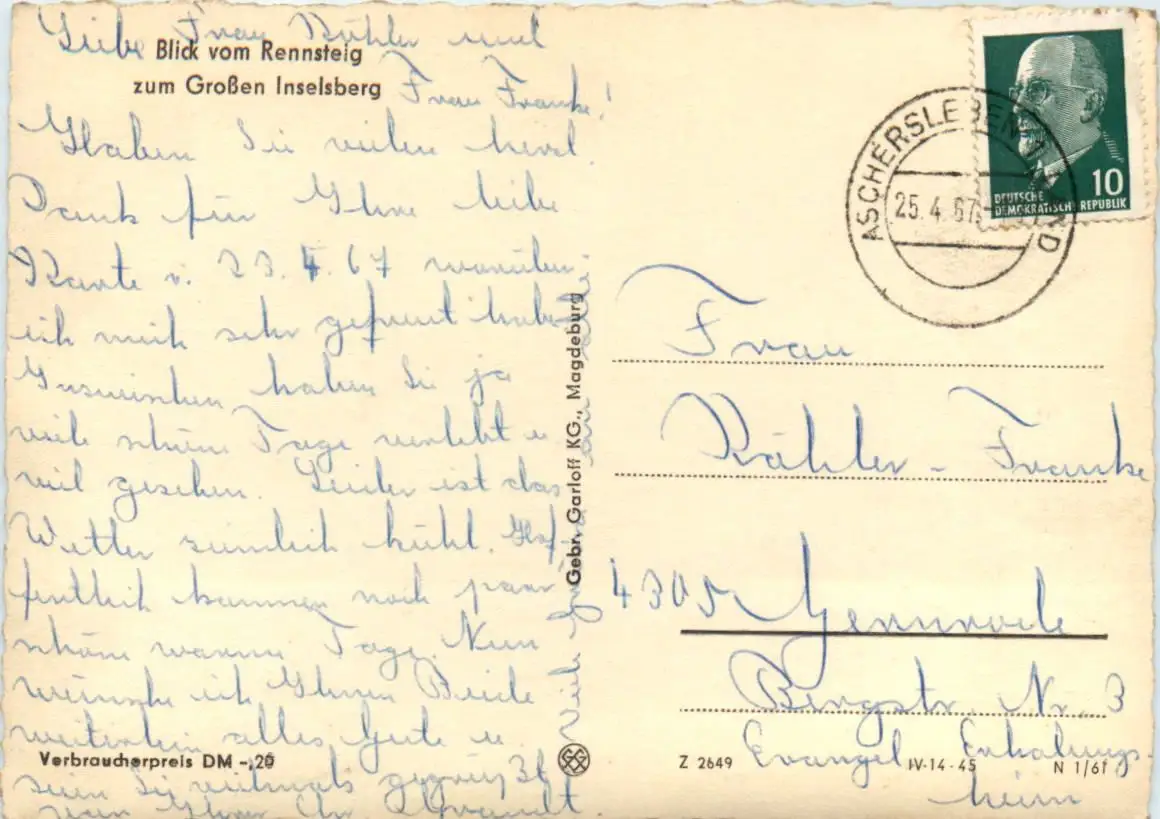 Liebe Frau Bühler und
Frau Franke!
Blick vom Rennsteig
zum Großen Inselsberg
Haben Sie vielen herzl.
Dank für Ihre liebe
Karte v. 23.4.67 worüber
ich mich sehr gefreut habe.
Inzwischen haben Sie ja
viele schöne Tage verlebt u.
viel gesehen. Leider ist das
Wetter ziemlich kühl. Hof-
fentlich kommen noch paar
schöne warme Tage. Nun
wünsche ich Ihnen Beide
weiterhin alles Gute u.
seien Sie vielmals gegrüßt
von Ihrer
Viele
an alle
Verbraucherpreis DM -,20
Gebr. Garloff KG., Magdeburg
ASCHERSLEBEN
25.4.67
10
DEUTSCHE
DEMOKRATISCHE REPUBLIK
Frau
Bühler - Franke
4305 Gernrode
Bergstr. Nr. 3
Evangel. Erholungs-
heim
Z 2649 IV-14-45 N 1/61